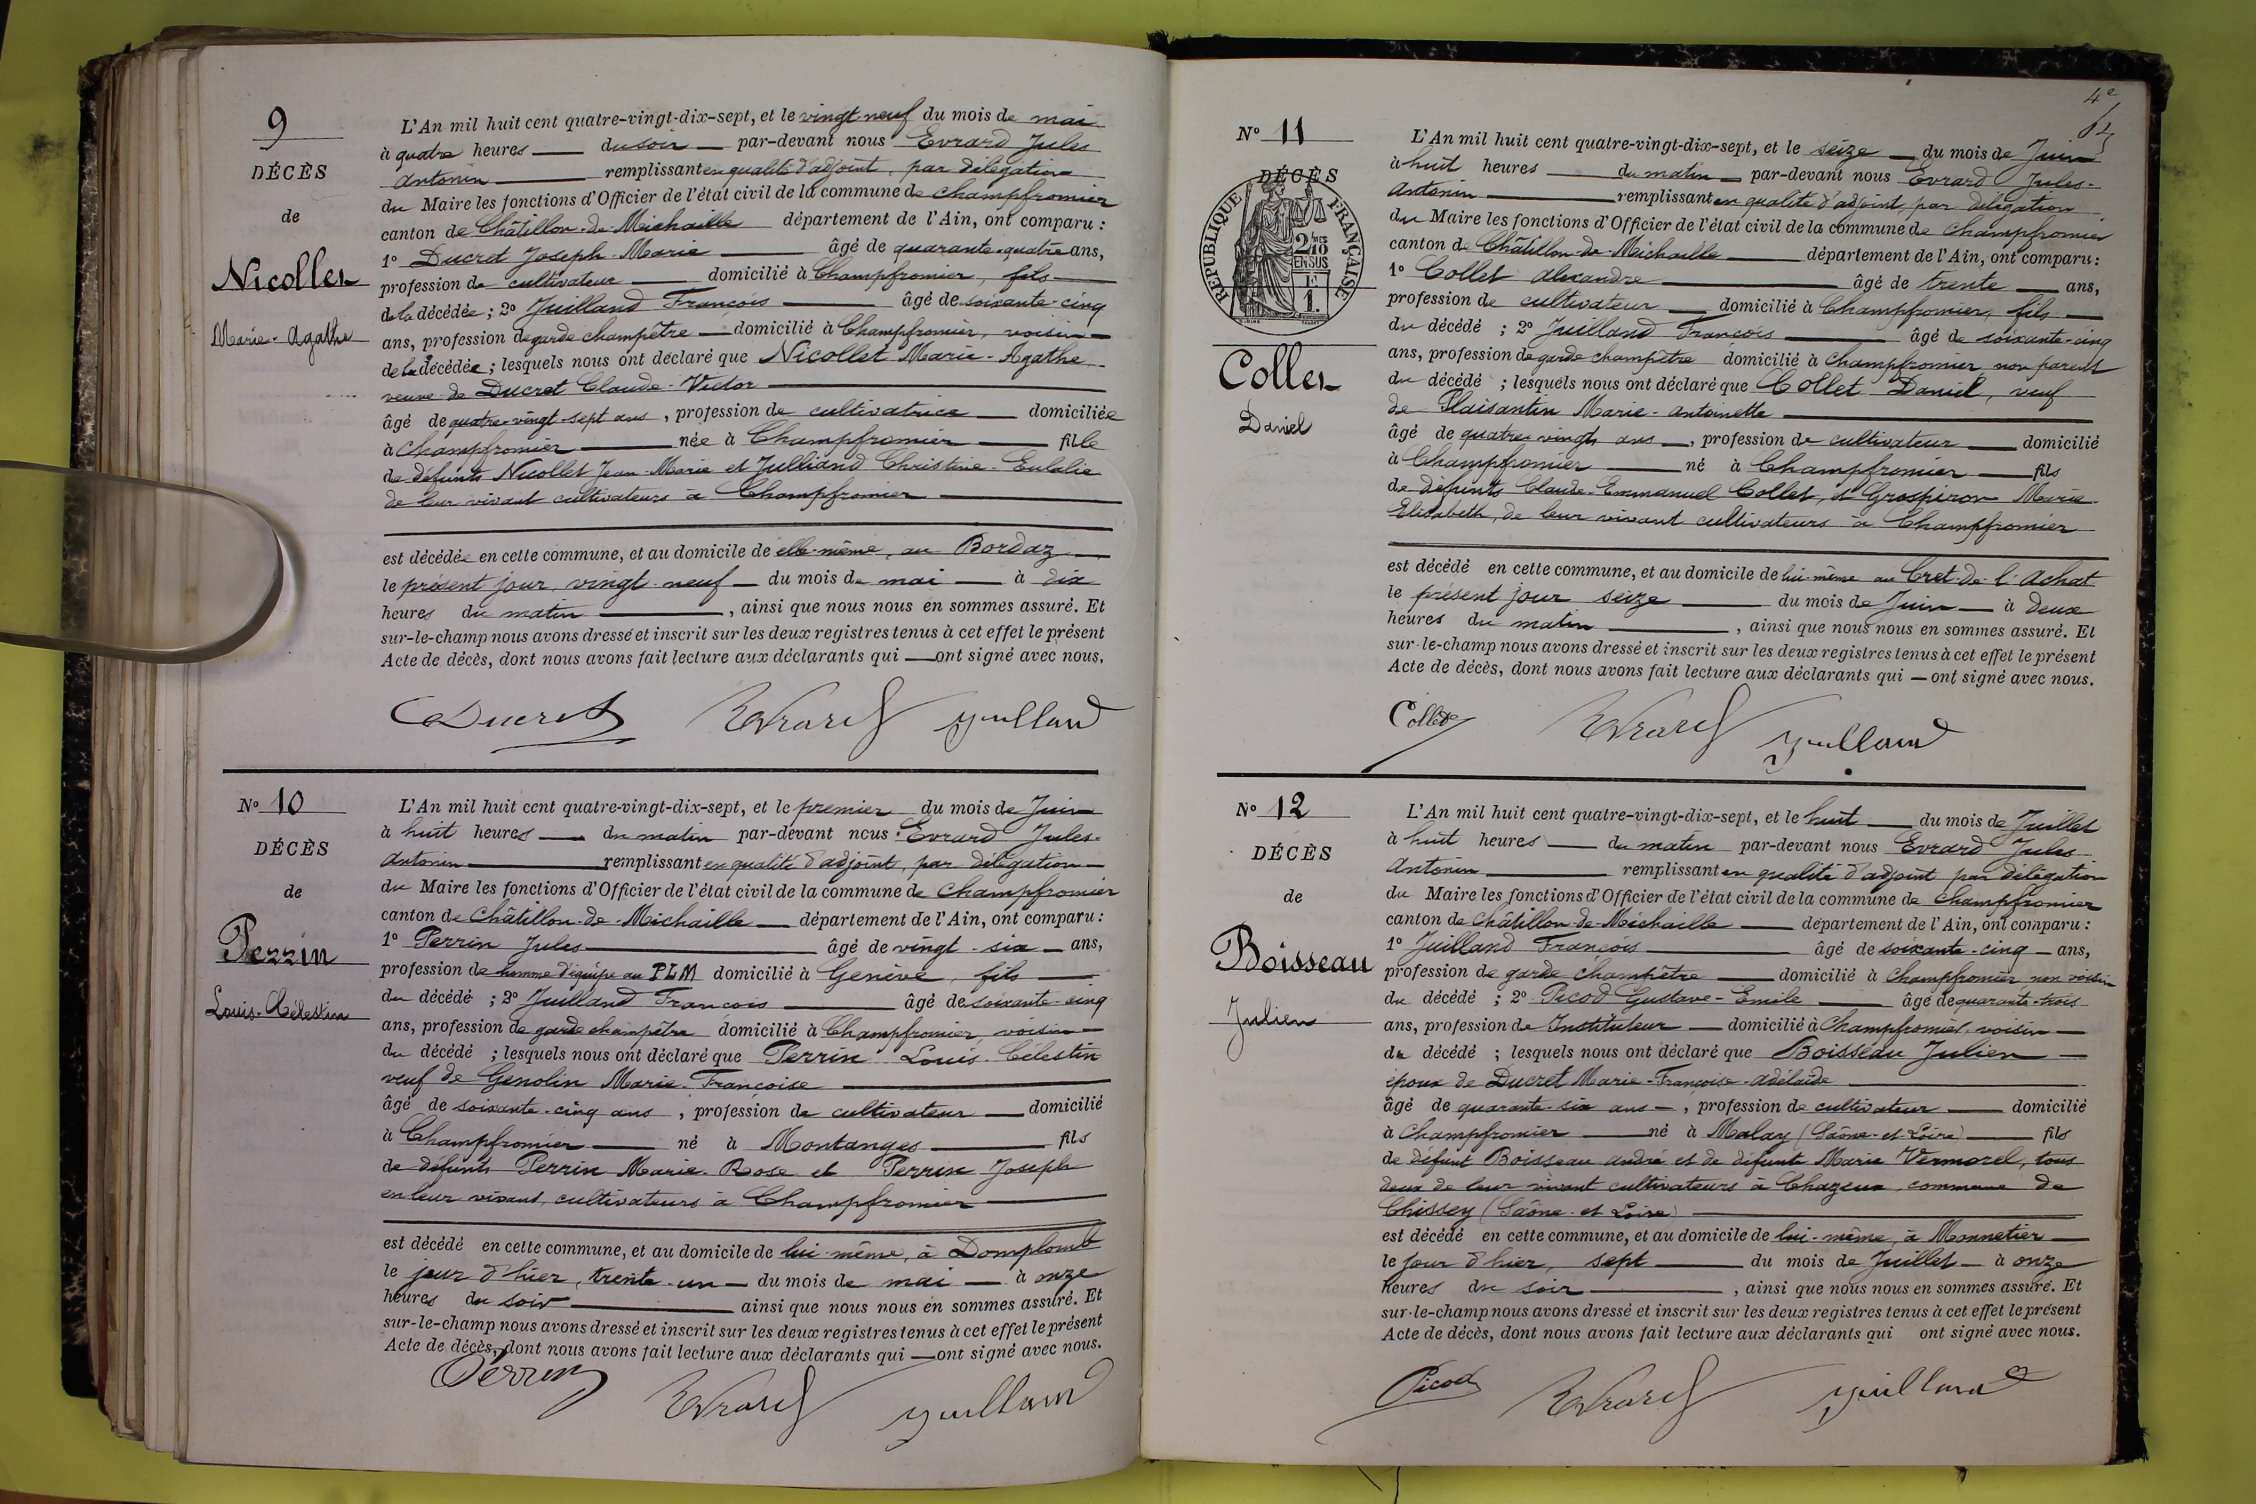 9
DÉCÈS
de
Nicollet
Marie-Agathe
L'An mil huit cent quatre-vingt-dix-sept, et le vingt neuf du mois de mai
à quatre heures du soir par-devant nous Evrard Jules
Antonin remplissant en qualité d'adjoint, par délégation
du Maire les fonctions d'Officier de l'état civil de la commune de Champfromier
canton de Châtillon-de-Michaille département de l'Ain, ont comparu :
1º Ducret Joseph-Marie âgé de quarante-quatre ans,
profession de cultivateur domicilié à Champfromier, fils
de la décédée ; 2º Juilland François âgé de soixante-cinq
ans, profession de garde champêtre domicilié à Champfromier, voisin
de la décédée ; lesquels nous ont déclaré que Nicollet Marie-Agathe
veuve de Ducret Claude-Victor
âgé de quatre-vingt-sept ans, profession de cultivatrice domiciliée
à Champfromier née à Champfromier fille
de défunts Nicollet Jean-Marie et Julliand Christine-Eulalie
de leur vivant cultivateurs à Champfromier
est décédée en cette commune, et au domicile de elle-même, au Bordaz
le présent jour vingt-neuf du mois de mai à dix
heures du matin, ainsi que nous nous en sommes assuré. Et
sur-le-champ nous avons dressé et inscrit sur les deux registres tenus à cet effet le présent
Acte de décès, dont nous avons fait lecture aux déclarants qui ont signé avec nous.
Ducret Evrard Juilland
Nº 10
DÉCÈS
de
Perrin
Louis-Célestin
L'An mil huit cent quatre-vingt-dix-sept, et le premier du mois de Juin
à huit heures du matin par-devant nous Evrard Jules-
Antonin remplissant en qualité d'adjoint, par délégation
du Maire les fonctions d'Officier de l'état civil de la commune de Champfromier
canton de Châtillon-de-Michaille département de l'Ain, ont comparu :
1º Perrin Jules âgé de vingt-six ans,
profession de homme d'équipe au PLM domicilié à Genève, fils
du décédé ; 2º Juilland François âgé de soixante-cinq
ans, profession de garde champêtre domicilié à Champfromier, voisin
du décédé ; lesquels nous ont déclaré que Perrin Louis-Célestin
veuf de Genolin Marie-Françoise
âgé de soixante-cinq ans, profession de cultivateur domicilié
à Champfromier né à Montanges fils
de défunts Perrin Marie-Rose et Perrin Joseph
en leur vivant, cultivateurs à Champfromier
est décédé en cette commune, et au domicile de lui-même, à Domplomb
le jour d'hier, trente-un du mois de mai à onze
heures du soir ainsi que nous nous en sommes assuré. Et
sur-le-champ nous avons dressé et inscrit sur les deux registres tenus à cet effet le présent
Acte de décès, dont nous avons fait lecture aux déclarants qui ont signé avec nous.
Perrin Evrard Juilland
4e
Nº 11
DÉCÈS
RÉPUBLIQUE FRANÇAISE
2/10 EN SUS
1F
Collet
Daniel
L'An mil huit cent quatre-vingt-dix-sept, et le seize du mois de Juin
à huit heures du matin par-devant nous Evrard Jules-
Antonin remplissant en qualité d'adjoint, par délégation
du Maire les fonctions d'Officier de l'état civil de la commune de Champfromier
canton de Châtillon-de-Michaille département de l'Ain, ont comparu :
1º Collet Alexandre âgé de trente ans,
profession de cultivateur domicilié à Champfromier, fils
du décédé ; 2º Juilland François âgé de soixante-cinq
ans, profession de garde champêtre domicilié à Champfromier non parent
du décédé ; lesquels nous ont déclaré que Collet Daniel, veuf
de Plaisantin Marie-Antoinette
âgé de quatre-vingts ans, profession de cultivateur domicilié
à Champfromier né à Champfromier fils
de défunts Claude-Emmanuel Collet, et Grospiron Marie
Elisabeth, de leur vivant cultivateurs à Champfromier
est décédé en cette commune, et au domicile de lui-même au Cret-de-l'Achat
le présent jour seize du mois de Juin à deux
heures du matin, ainsi que nous nous en sommes assuré. Et
sur-le-champ nous avons dressé et inscrit sur les deux registres tenus à cet effet le présent
Acte de décès, dont nous avons fait lecture aux déclarants qui ont signé avec nous.
Collet Evrard Juilland
Nº 12
DÉCÈS
de
Boisseau
Julien
L'An mil huit cent quatre-vingt-dix-sept, et le huit du mois de Juillet
à huit heures du matin par-devant nous Evrard Jules
Antonin remplissant en qualité d'adjoint par délégation
du Maire les fonctions d'Officier de l'état civil de la commune de Champfromier
canton de Châtillon-de-Michaille département de l'Ain, ont comparu :
1º Juilland François âgé de soixante-cinq ans,
profession de garde champêtre domicilié à Champfromier, non voisin
du décédé ; 2º Picod Gustave-Emile âgé de quarante-trois
ans, profession de Instituteur domicilié à Champfromier, voisin
du décédé ; lesquels nous ont déclaré que Boisseau Julien
époux de Ducret Marie-Françoise-Adélaïde
âgé de quarante-six ans, profession de cultivateur domicilié
à Champfromier né à Malay (Saône-et-Loire) fils
de défunt Boisseau André et de défunte Marie Vermorel, tous
deux de leur vivant cultivateurs à Chazeux commune de
Chissey (Saône-et-Loire)
est décédé en cette commune, et au domicile de lui-même, à Monnetier
le jour d'hier, sept du mois de Juillet à onze
heures du soir, ainsi que nous nous en sommes assuré. Et
sur-le-champ nous avons dressé et inscrit sur les deux registres tenus à cet effet le présent
Acte de décès, dont nous avons fait lecture aux déclarants qui ont signé avec nous.
Picod Evrard Juilland